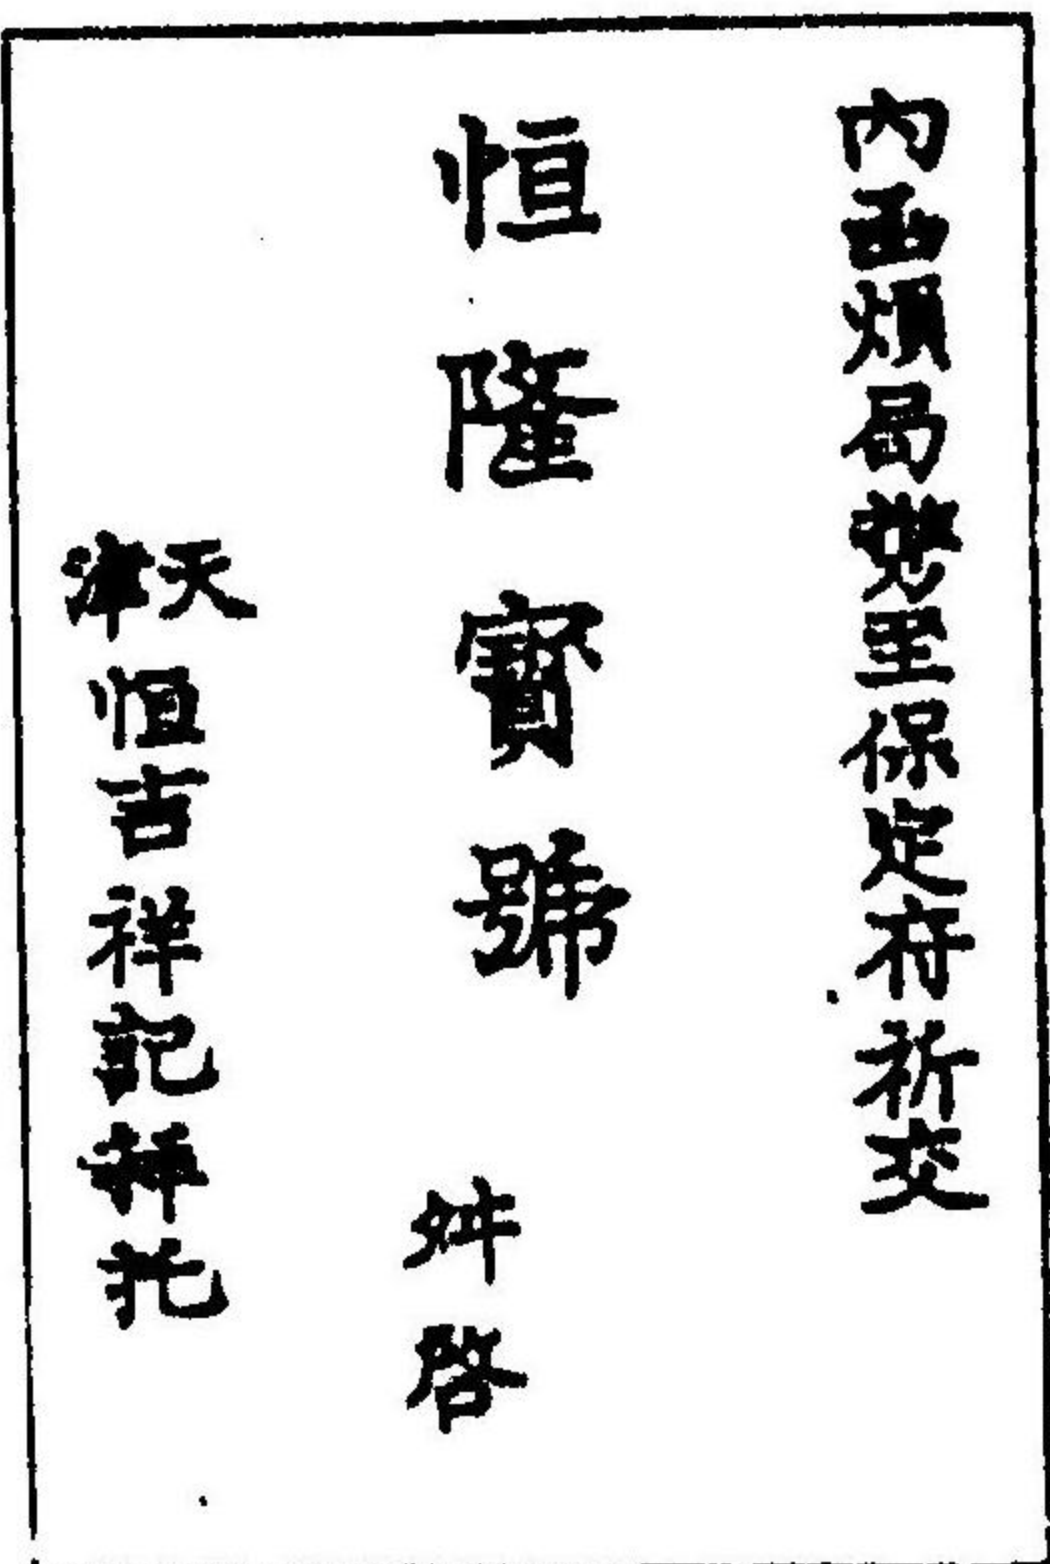 內函煩局勞至保定府祈交
恒隆寶號
升啓
天津恒吉祥記拜托